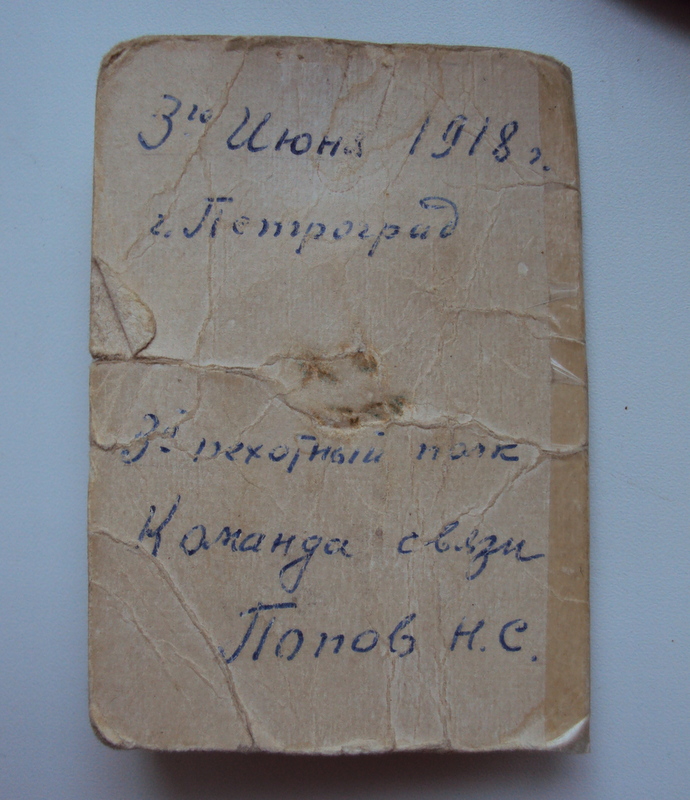 3го Июня 1918 г.
г. Петроград
3й пехотный полк
Команда связи
Попов Н.С.